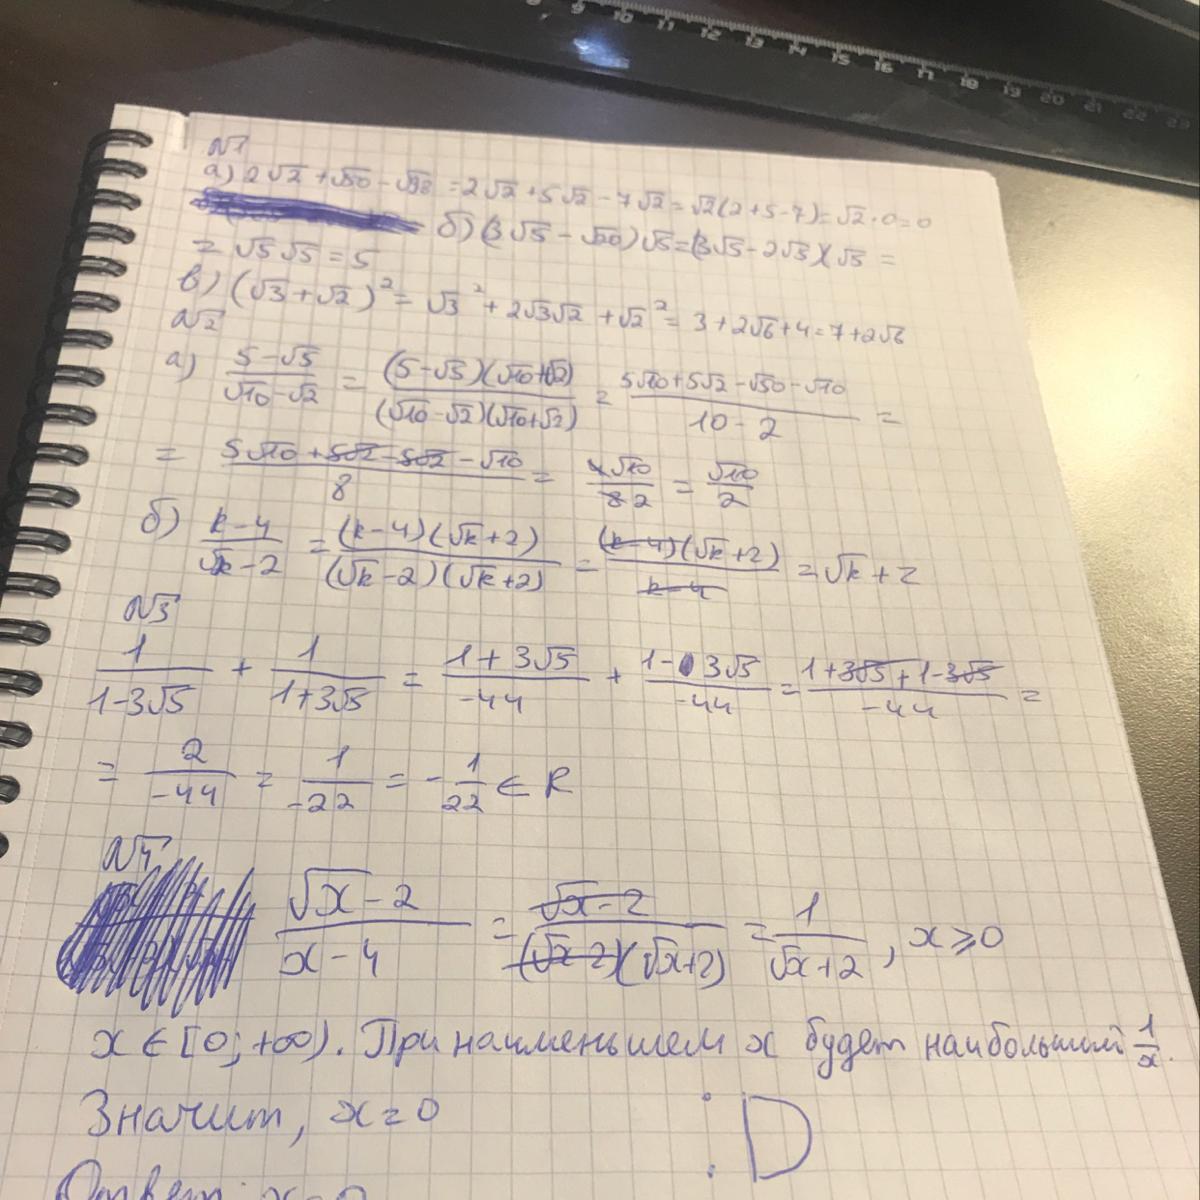 8 9 10 11 12 13 14 15 16 17 18 19 20 21 22 23
№1
а) 2√2 + √50 - √98 = 2√2 + 5√2 - 7√2 = √2(2+5-7) = √2·0 = 0
б) (3√5 - √20)√5 = (3√5 - 2√5)√5 =
= √5√5 = 5
в) (√3+√2)² = √3² + 2√3√2 + √2² = 3+2√6+4 = 7+2√6
№2
а) (5-√5)/(√10-√2) = (5-√5)(√10+√2)/(√10-√2)(√10+√2) = (5√10+5√2-√50-√10)/(10-2) =
= (5√10+5√2-5√2-√10)/8 = 4√10/8 2 = √10/2
б) (k-4)/(√k-2) = (k-4)(√k+2)/(√k-2)(√k+2) = (k-4)(√k+2)/(k-4) = √k+2
№3
1/(1-3√5) + 1/(1+3√5) = (1+3√5)/-44 + (1-3√5)/-44 = (1+3√5+1-3√5)/-44 =
= 2/-44 = 1/-22 = -1/22 ∈ R
№4
(√x-2)/(x-4) = (√x-2)/(√x-2)(√x+2) = 1/(√x+2), x⩾0
x∈[0;+∞). При наименьшем x будет наибольший 1/x.
Значит, x=0 :D
Ответ: x=0